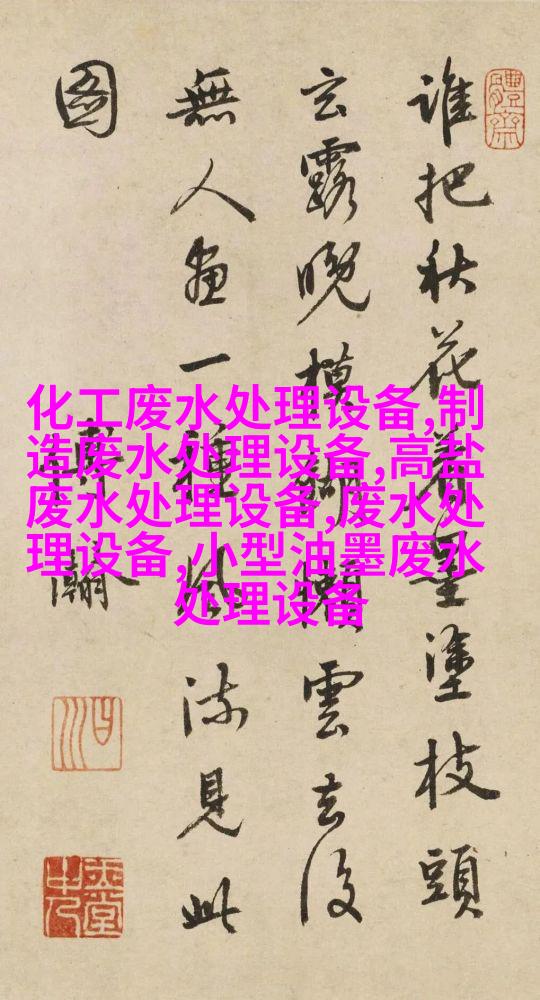 誰把秋花着墨塗枝頭
玄露晚模糊懶雲去後
無人畫一種風流見此
圖
化工废水处理设备,制
造废水处理设备,高盐
废水处理设备,废水处
理设备,小型油墨废水
处理设备